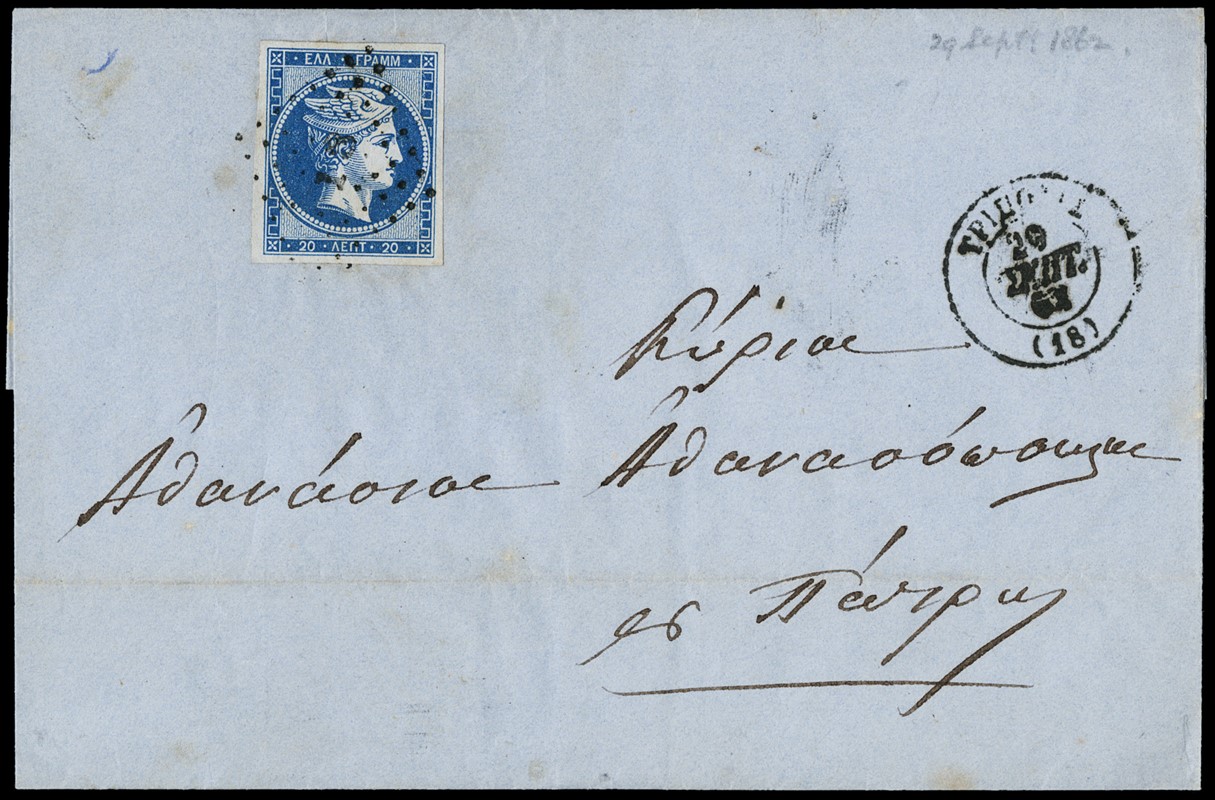 29 Sept. 1862.
ΕΛΛ ΓΡΑΜΜ
20 ΛΕΠΤ 20
29
ΣΕΠΤ.
62
(18)
Κύριον
Αθανάσιον Αθανασόπουλον
εις Πάτρας